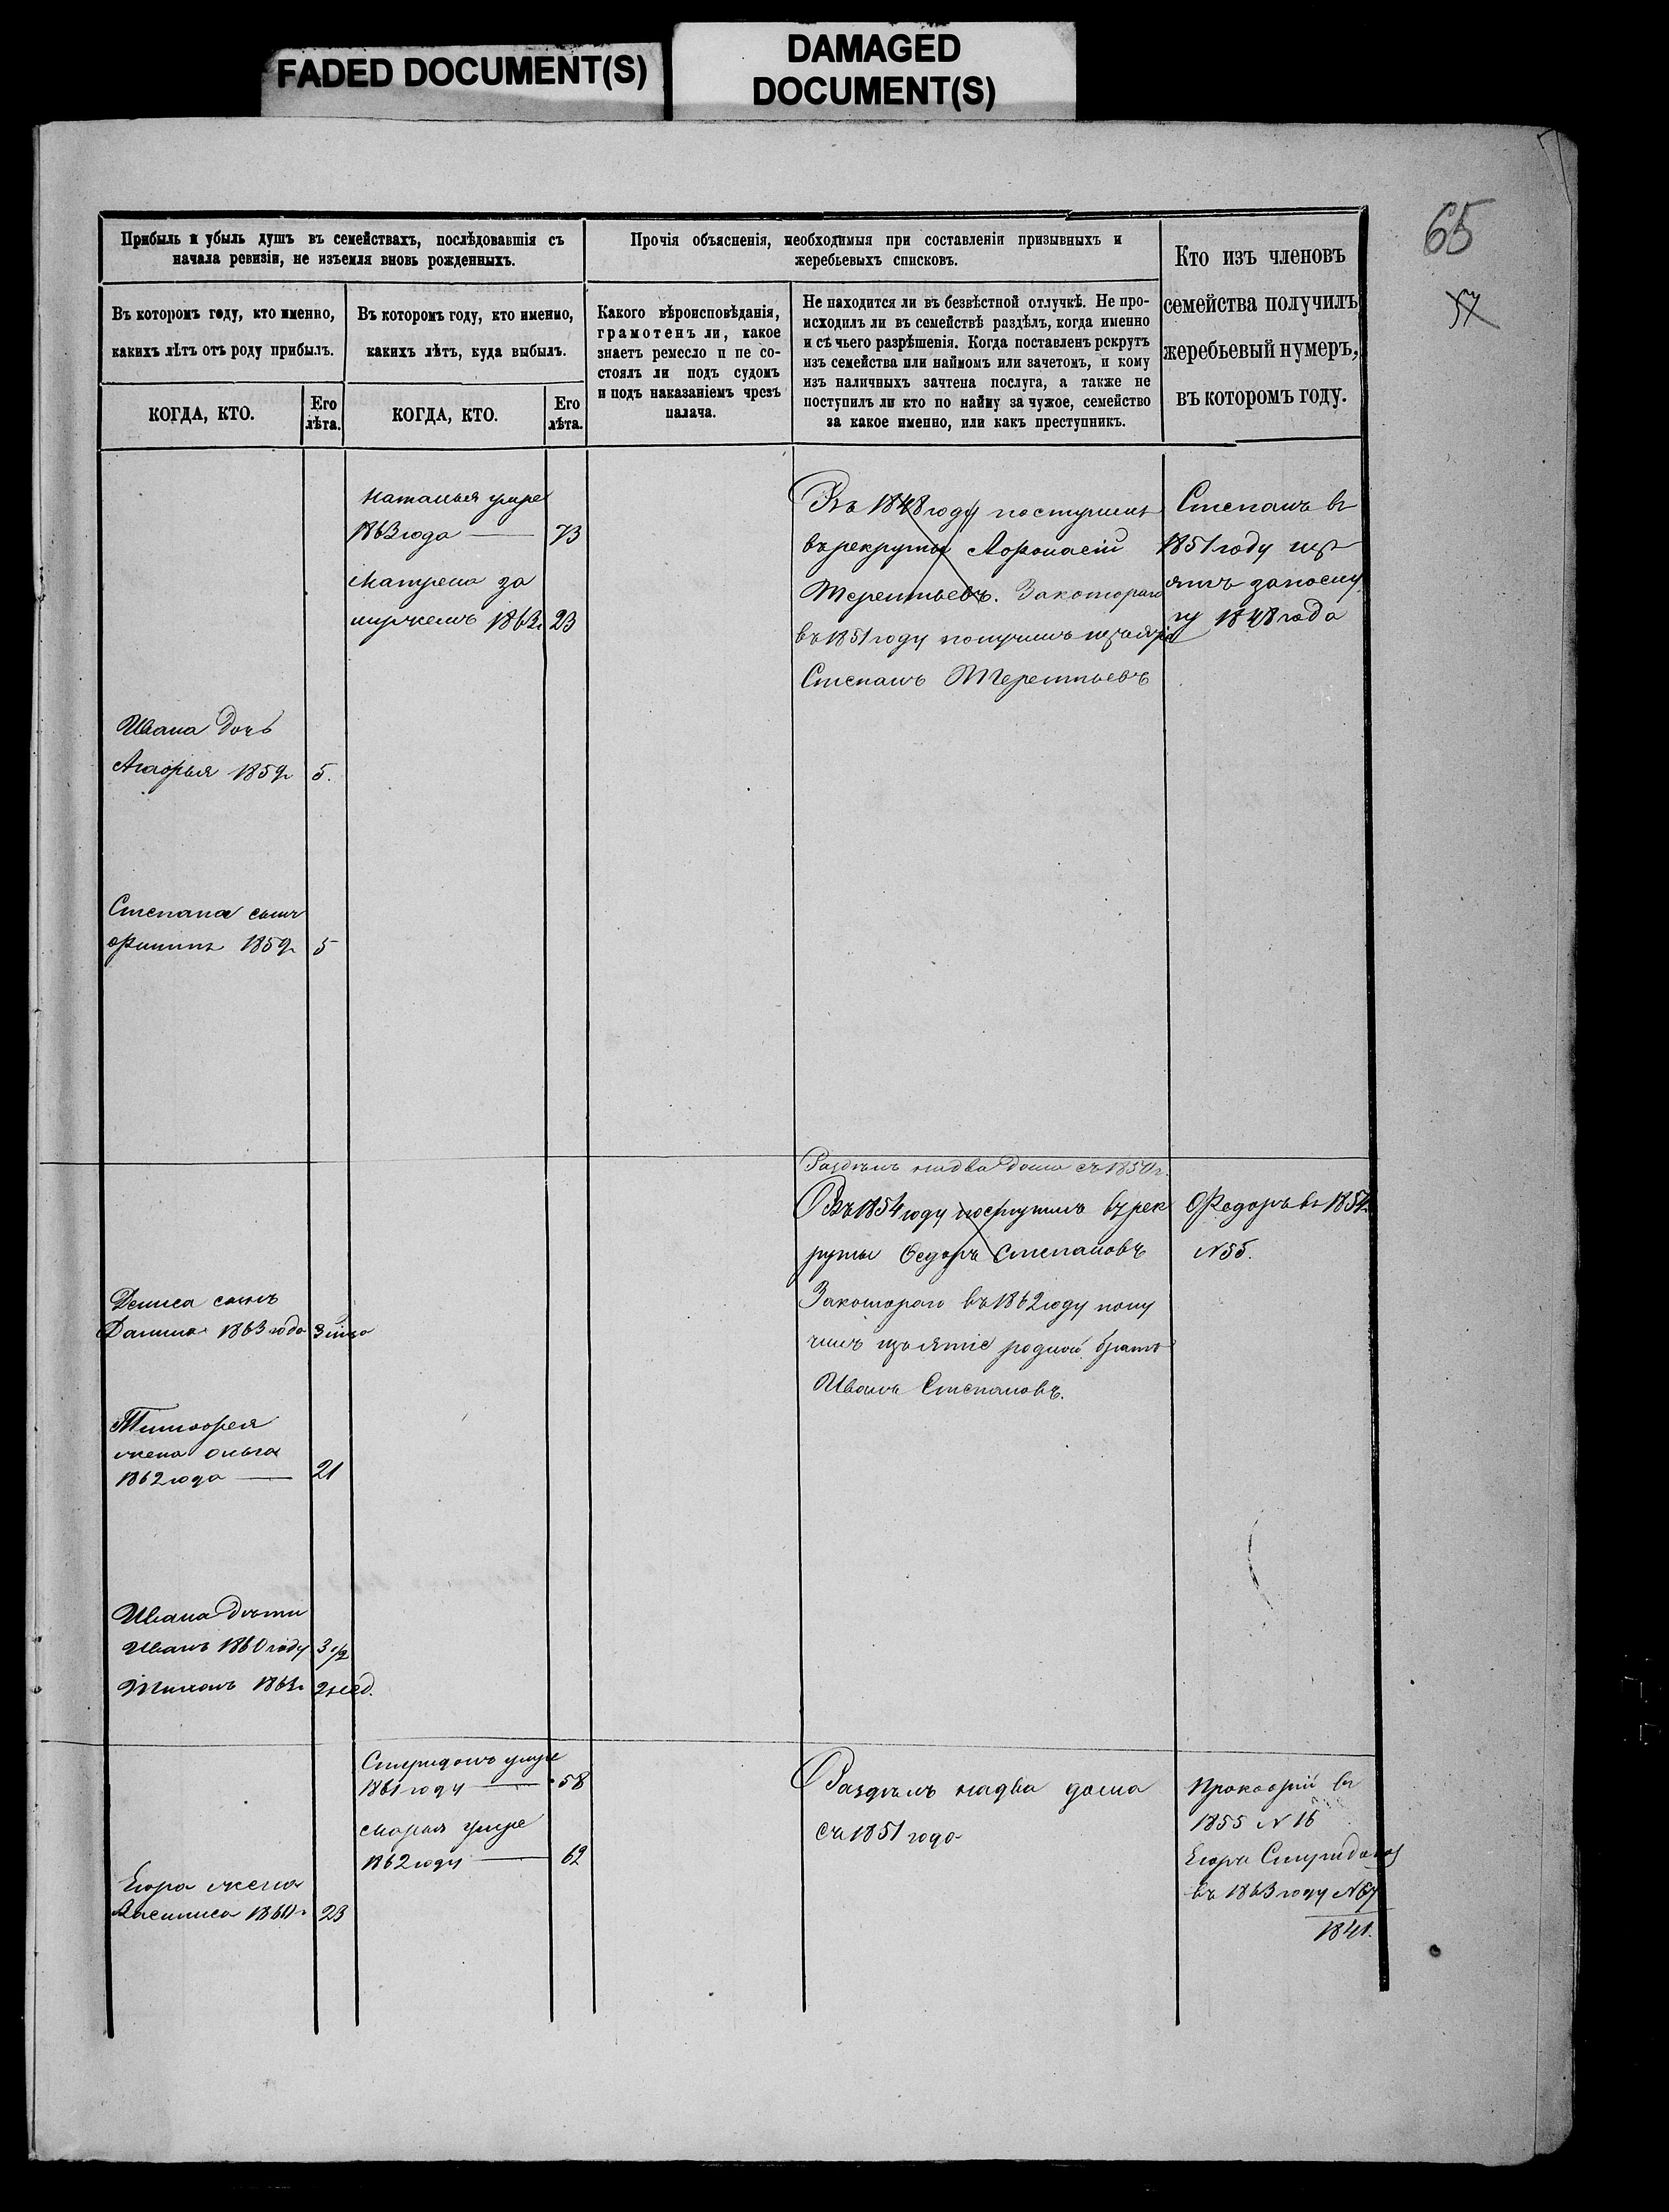 FADED DOCUMENT(S)
DAMAGED
DOCUMENT(S)
65
57
Прибыль и убыль душъ въ семействахъ, послѣдовавшія съ
начала ревизіи, не изъемля вновь рожденныхъ.
Въ которомъ году, кто именно,
какихъ лѣтъ отъ роду прибылъ.
КОГДА, КТО.
Его
лѣта.
Въ которомъ году, кто именно,
какихъ лѣтъ, куда выбылъ.
КОГДА, КТО.
Его
лѣта.
Прочія объясненія, необходимыя при составленіи призывныхъ и
жеребьевыхъ списковъ.
Какого вѣроисповѣданія,
грамотенъ ли, какое
знаетъ ремесло и не со-
стоялъ ли подъ судомъ
и подъ наказаніемъ чрезъ
палача.
Не находится ли въ безвѣстной отлучкѣ. Не про-
исходилъ ли въ семействѣ раздѣлъ, когда именно
и съ чьего разрѣшенія. Когда поставленъ рекрутъ
изъ семейства или наймомъ или зачетомъ, и кому
изъ наличныхъ зачтена послуга, а также не
поступилъ ли кто по найму за чужое, семейство
за какое именно, или какъ преступникъ.
Кто изъ членовъ
семейства получилъ
жеребьевый нумеръ,
въ которомъ году.
Наталья умре
1863 года — 73
Матрена за
мужемъ 1863г 23
Въ 1848 году поступилъ
въ рекруты Афонасій
Терентьевъ. Закотораго
въ 1851 году получилъ
Степанъ Терентьевъ
Степанъ въ
1851 году изъ
ятъ запослу
гу 1848 года
Ивана дочь
Агафья 1859г 5.
Степана сынъ
Филипъ 1859г 5
Раздѣлъ на два дома съ 1850г.
Въ 1854 году поступилъ въ рек
руты Федоръ Степановъ
Закотораго въ 1862 году полу
чилъ изъятіе родной братъ
Иванъ Степановъ.
Федоръ въ 1854
N 55.
Дениса сынъ
Данила 1863 года
Тимофея
жена Ольга
1862 года — 21
Ивана дѣти
Иванъ 1860 году 3 1/2
Тихонъ 1863г 2 нед.
Спиридонъ умре
1861 году — 58
Марья умре
1862 году — 62
Раздѣлъ на два дома
съ 1851 года
Прокофій въ
1855 N 16
Егоръ Спиридоновъ
въ 1863 году N 67
1841.
Егора жена
Василиса 1860г 23